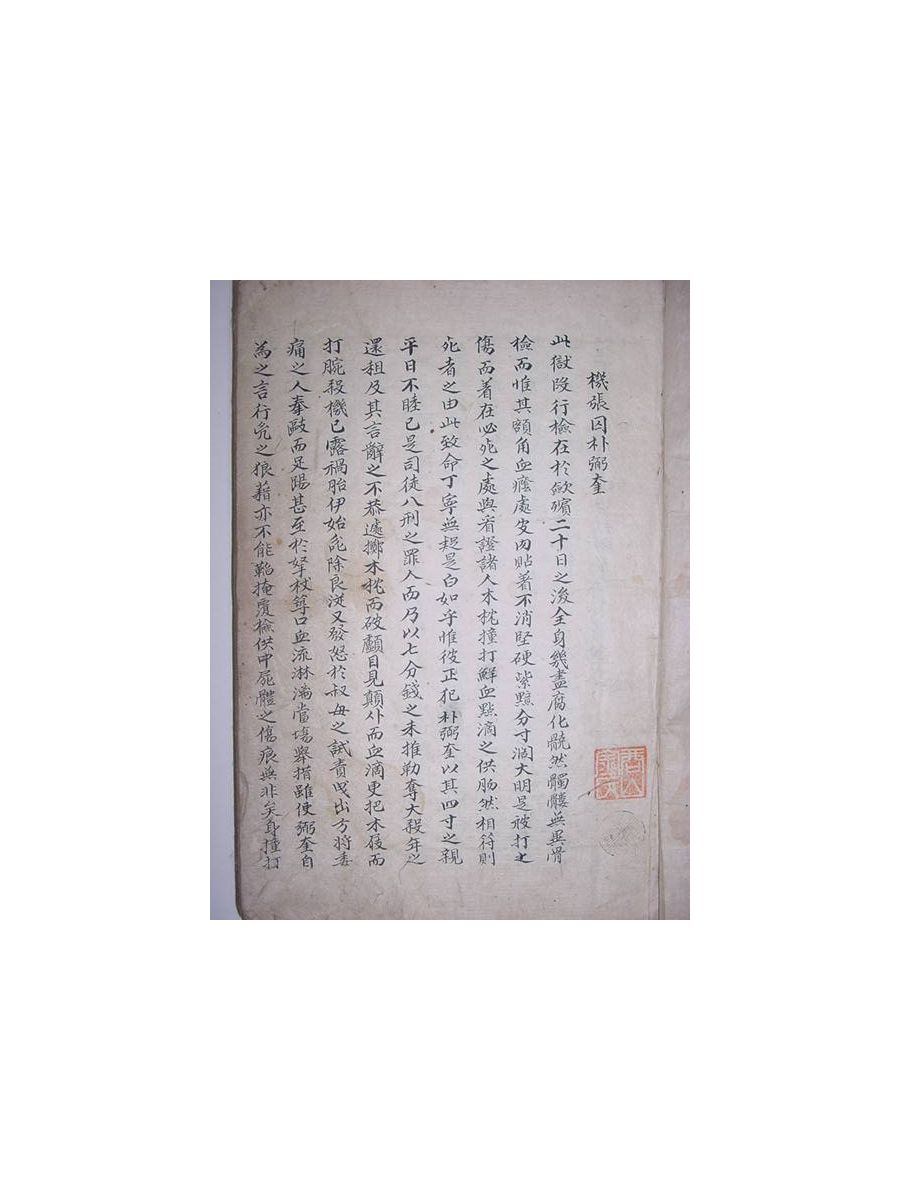 機張囚朴弼奎
此獄段行檢在於斂殯二十日之後全身幾盡腐化髐然髑髏無異骨
檢而惟其額角血癊處皮肉貼著不消堅硬紫黯分寸濶大明是被打之
傷而着在必死之處與看證諸人木枕撞打鮮血點滴之供脗然相符則
死者之由此致命丁寧無疑是白如乎惟彼正犯朴弼奎以其四寸之親
平日不睦已是司徒八刑之罪人而乃以七分錢之未推勒奪大殺年之
還租及其言辭之不恭遽擲木枕而破顱目見顛仆而血滴更把木屐而
打腕殺機已露禍胎伊始除良又發怒於叔母之試責出方將委
痛之人拳毆而足踢甚至於杖口血流淋漓當場擧措雖使弼奎自
爲之言行兇之狼藉亦不能掩覆檢供中屍體之傷痕無非矣身撞打